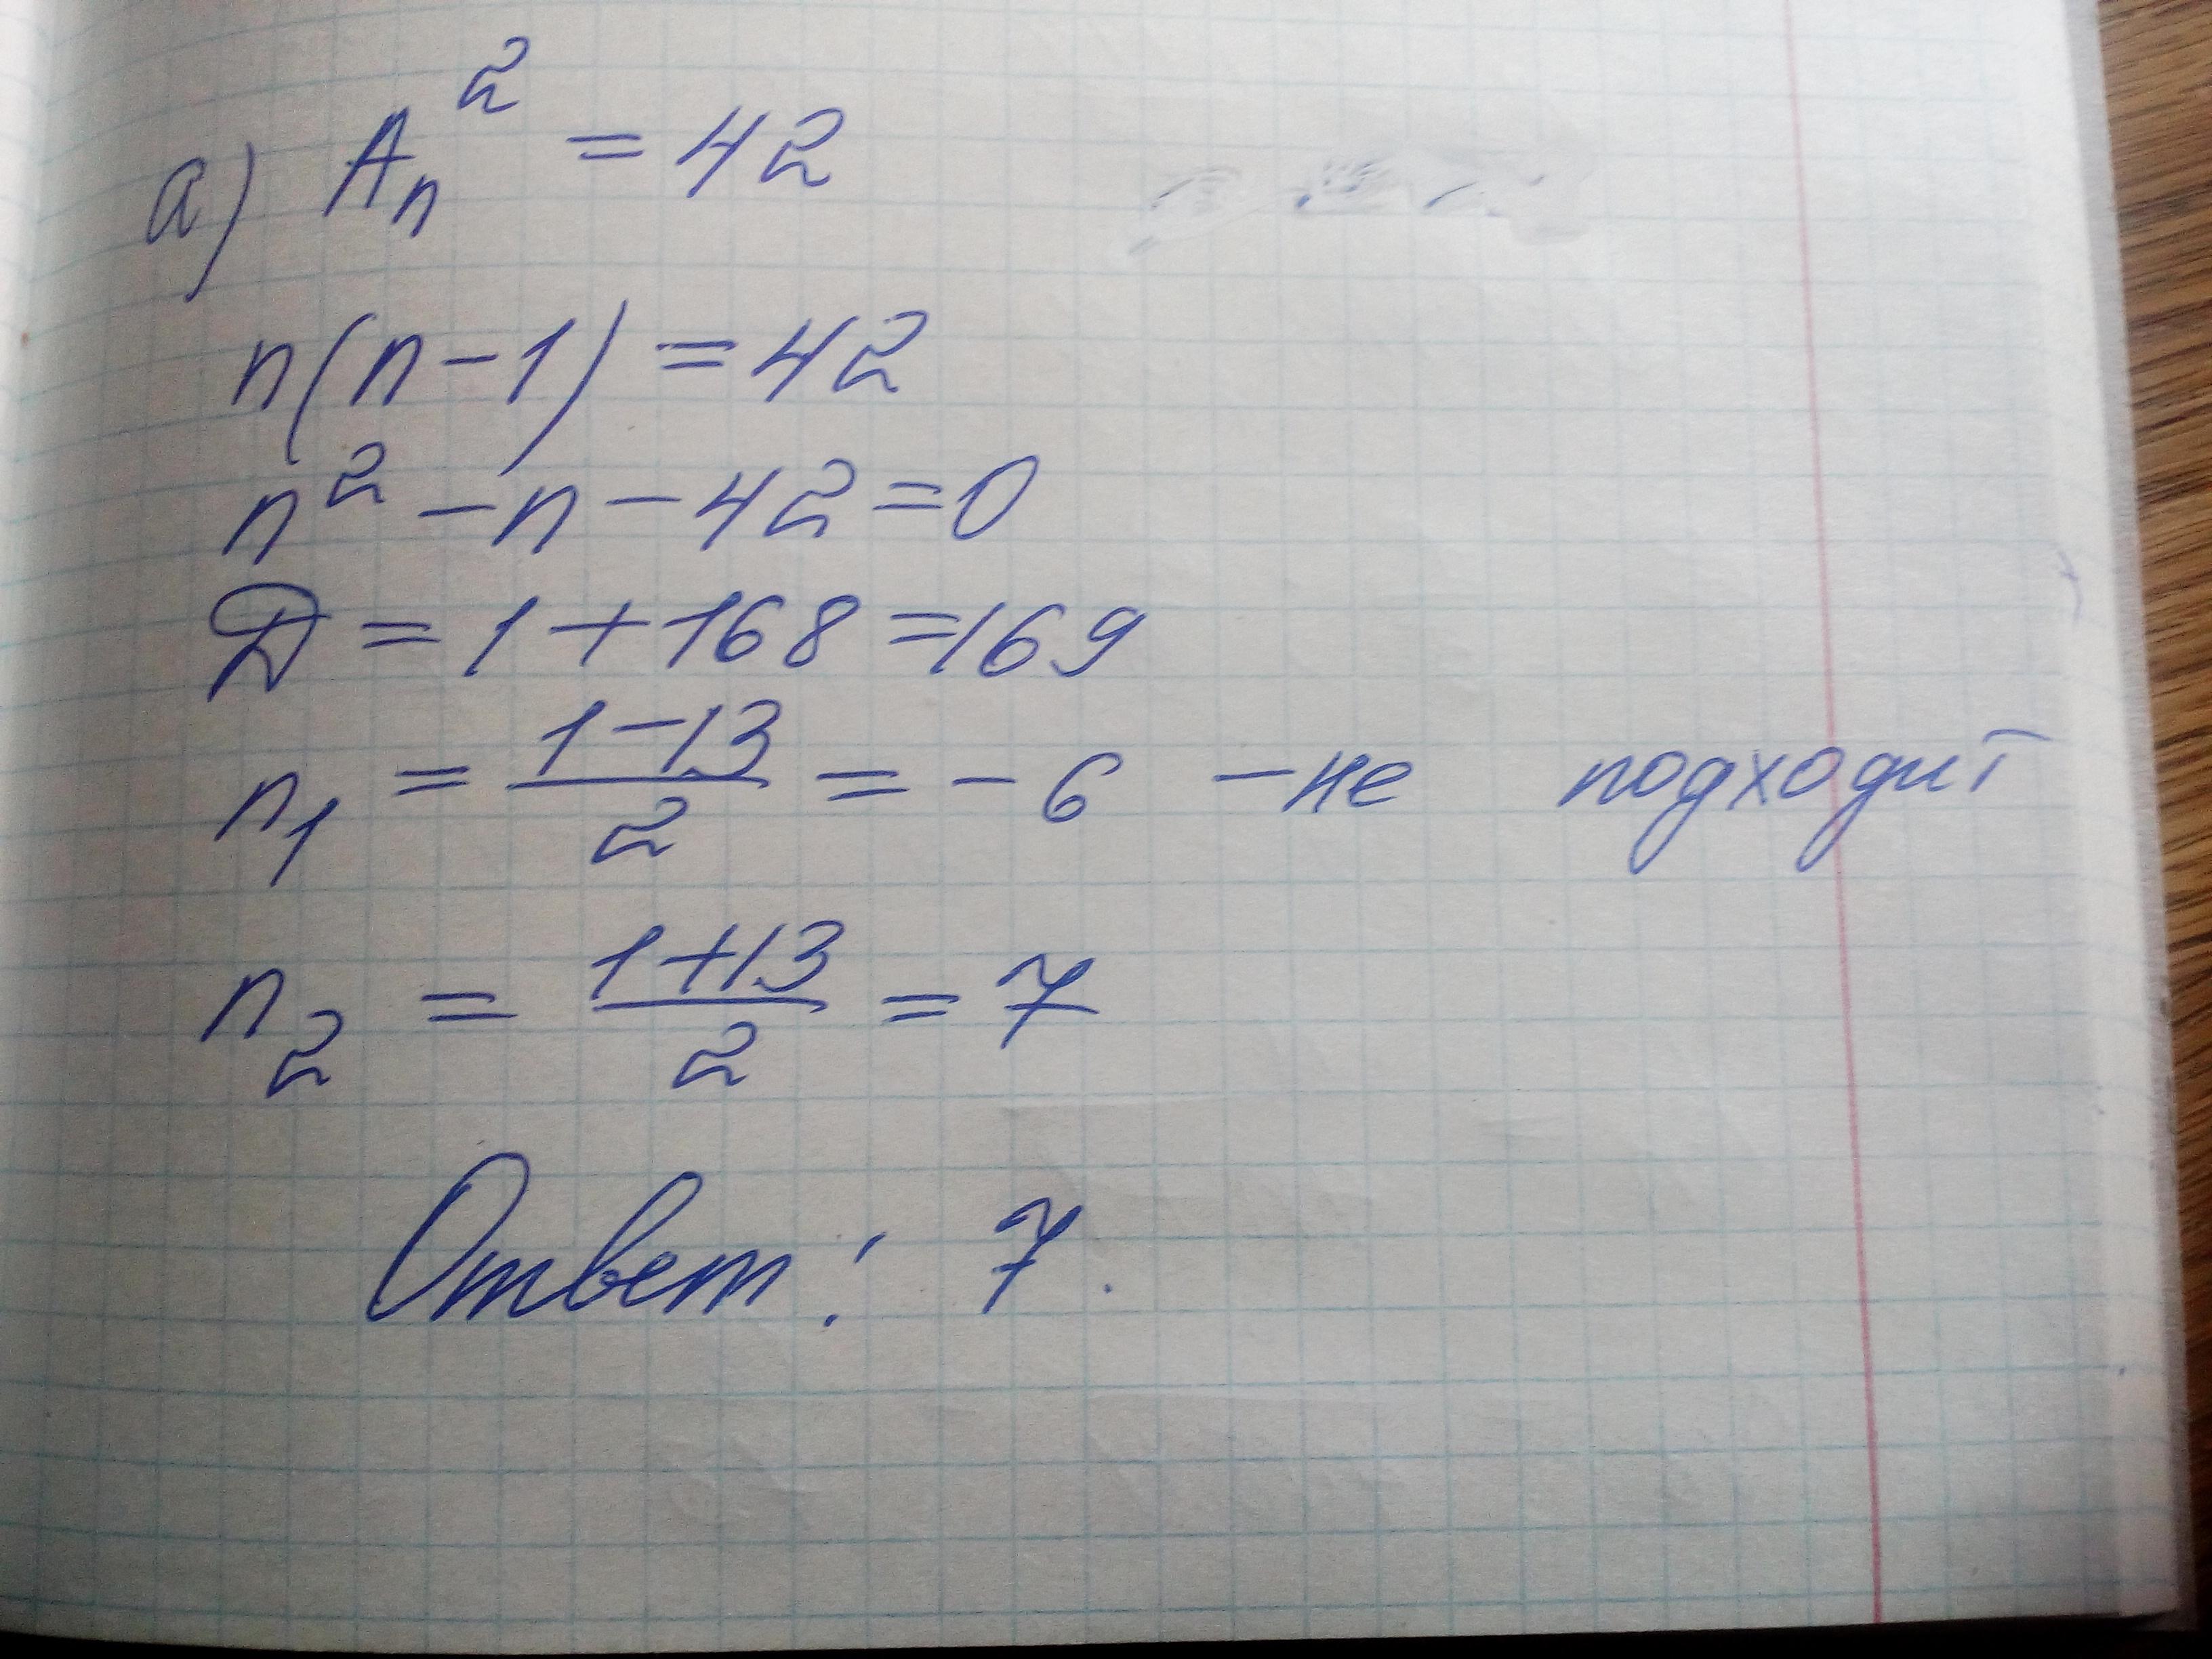 а) Aₙ² = 42
n(n-1) = 42
n² - n - 42 = 0
D = 1 + 168 = 169
n₁ = (1-13)/2 = -6 - не подходит
n₂ = (1+13)/2 = 7
Ответ: 7.